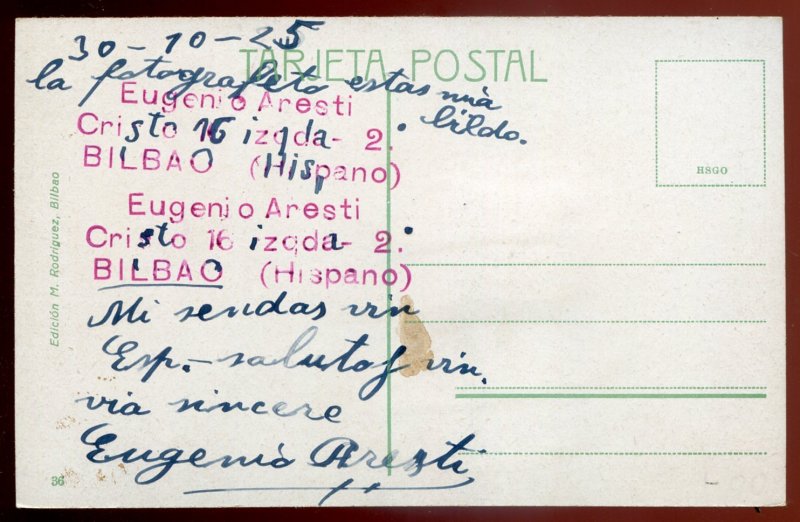 30-10-25
TARJETA POSTAL
la fotografeto estas mia
bildo.
Eugenio Aresti
Cristo 16 izqda- 2.
BILBAO (Hispano)
Eugenio Aresti
Cristo 16 izqda- 2.
BILBAO (Hispano)
Mi sendas vin
Esp.- salutoj vin,
via sincere
Eugenio Aresti
Edición M. Rodríguez, Bilbao
36
HSGO